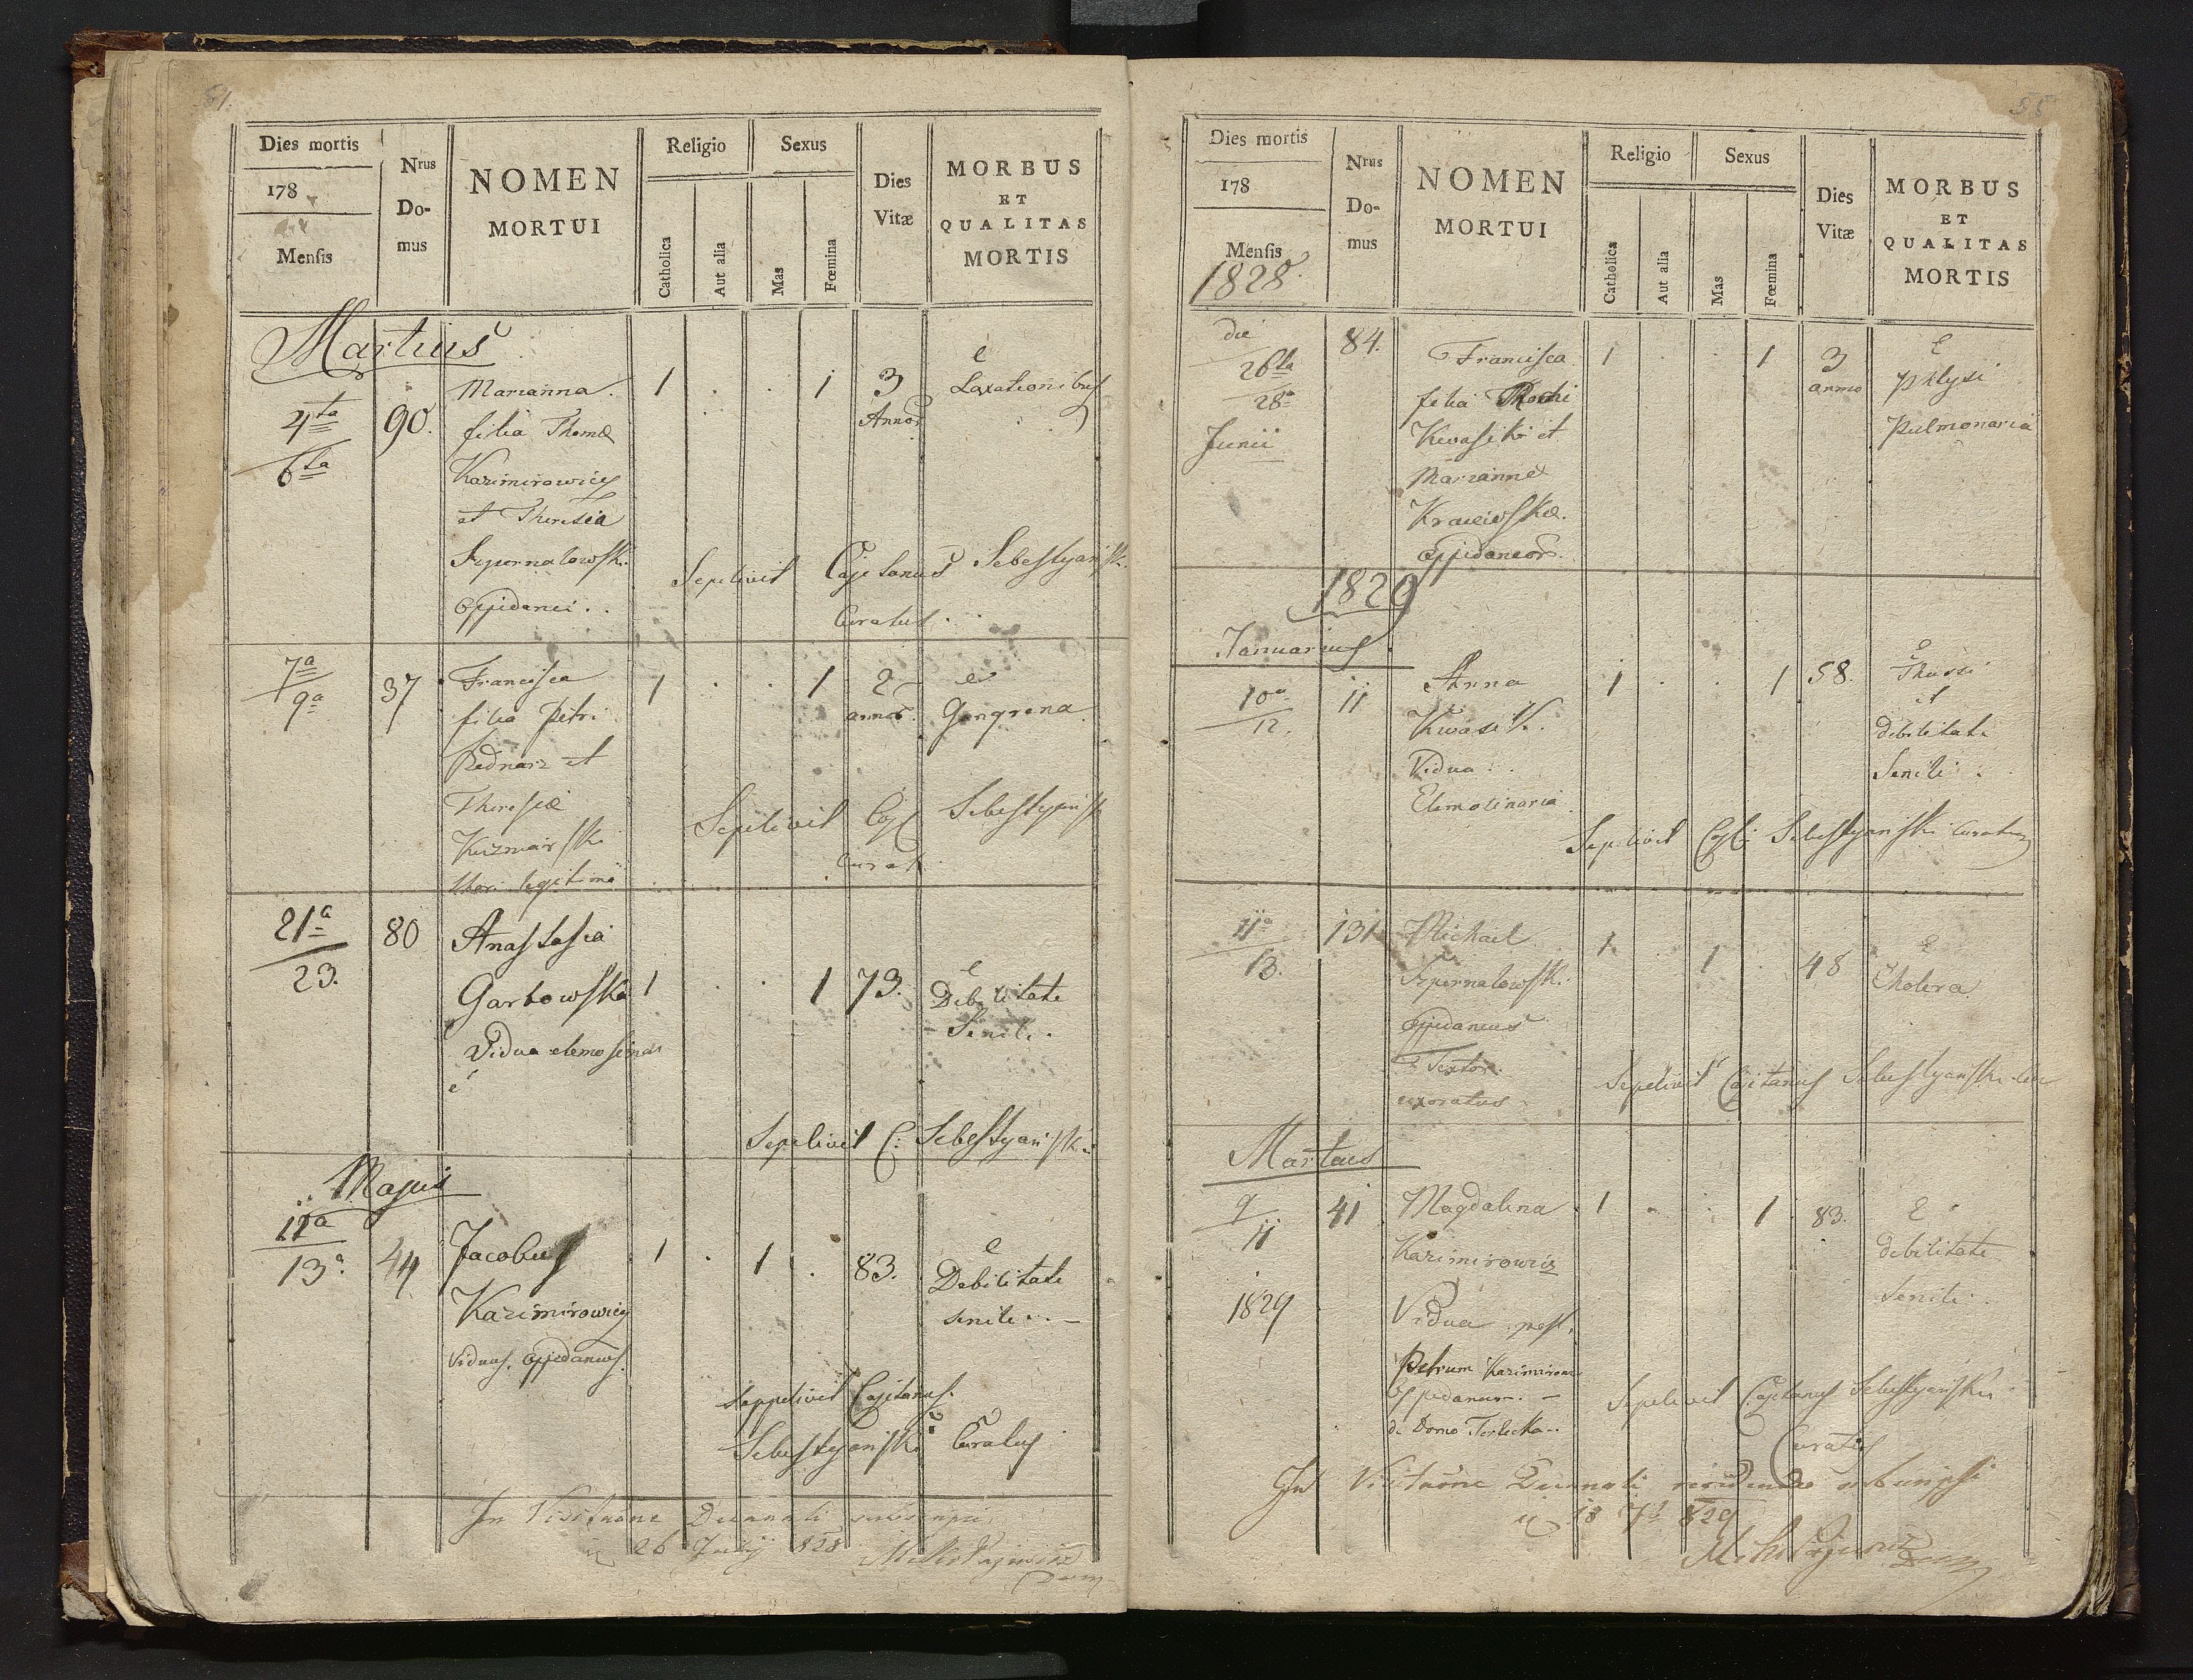 Dies mortis
178
Mensis
Nrus
Do-
mus
NOMEN
MORTUI
Religio
Catholica
Aut alia
Sexus
Mas
Fœmina
Dies
Vitæ
MORBUS
ET
QUALITAS
MORTIS
Martius
4ta
6ta
90.
Marianna.
filia Thomæ
Kazimirowicz
et Theresia
Szpernalowski
Oppidanei..
1 . . 1
3
Annor
e
Laxationibus
Sepelivit Cajetanus Sebestyański
Curatus.
7a
9a
37
Francisca
filia Petri
Bednarz et
Theresiæ
Kuzniarski
thori legitimi
1 . . 1
2
annor.
e
Gangrena
Sepelivit Caj Sebestyański
Curat.
21a
23.
80
Anastasia
Garbowska
Vidua elemosinar
1 . . 1
73.
e
Debilitate
Senili.
Sepelivit C: Sebestyański.
Majus
11a
13a
44
Jacobus
Kazimirowicz
viduus. oppidaneus.
1 . 1 .
83.
e
Debilitate
senili..
Seppelivit Cajetanus.
Sebestyański Curatus
In Visitaõne Decanali subscripsi
26 Julij 828
Dies mortis
178
Mensis
1828.
Nrus
Do-
mus
NOMEN
MORTUI
Religio
Catholica
Aut alia
Sexus
Mas
Fœmina
Dies
Vitæ
MORBUS
ET
QUALITAS
MORTIS
die
26ta
28a
Junii
84.
Francisca
filia Rochi
Kwasik et
Mariannæ
oppidaneor.
1 . . 1
3
anno
E
phtysi
Pulmonaria
1829
Januarius
10a
12.
11
Anna
Kwasik.
Vidua..
Elemosinaria
1 . . 1
58.
e
Thussi
et
debilitate
Senili.
Sepelivit Caj: Sebestyański Curatus
11a
13.
131
Michael
Szpernalowski.
oppidaneus
Textor.
uxoratus
1 . 1 .
48
E
Cholera
Sepelivit Cajetanus Sebestyański Cur
Martius
9
11
1829
41
Magdalena
Kazimirowicz
Vidua post.
Petrum Kazimirow
Oppidaneum.
de Domo Terlecka..
1 . . 1
83.
E
debilitate
Senili.
Sepelivit Cajetanus Sebestyański
Curatus
In Visitaõne Decanali
18 829